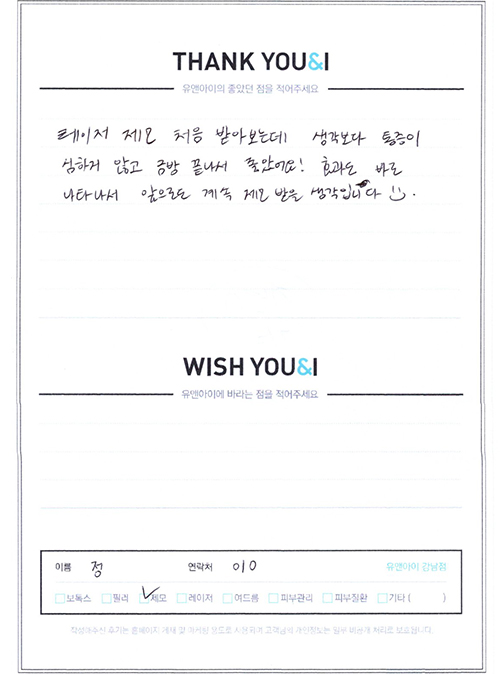 THANK YOU&I
유앤아이의 좋았던 점을 적어주세요
레이저 제모 처음 받아보는데 생각보다 통증이
심하지 않고 금방 끝나서 좋았어요! 효과도 바로
나타나서 앞으로도 계속 제모 받을 생각입니다 :).
WISH YOU&I
유앤아이에 바라는 점을 적어주세요
이름 정 연락처 010 유앤아이 강남점
보톡스 필러 제모 레이저 여드름 피부관리 피부질환 기타 ( )
작성해주신 후기는 홈페이지 게재 및 마케팅 용도로 사용되며 고객님의 개인정보는 일부 비공개 처리로 보호됩니다.